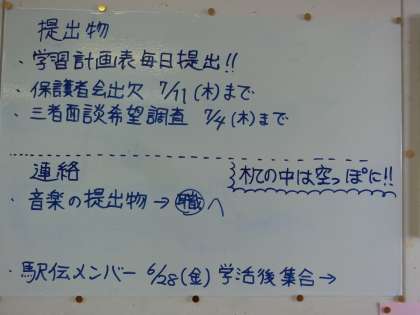 提出物
・学習計画表毎日提出!!
・保護者会出欠 7/11(木)まで
・三者面談希望調査 7/4(木)まで
連絡
机の中は空っぽに!!
・音楽の提出物→職へ
・駅伝メンバー 6/28(金) 学活後集合→